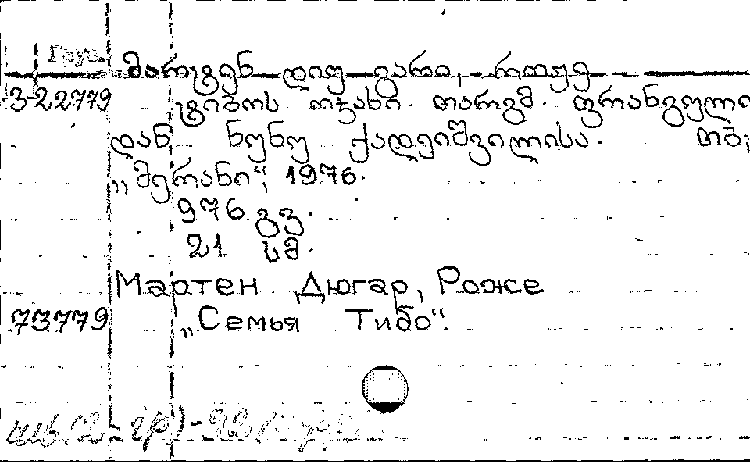 Груз.
მარტენ დიუ გარი, როჟე
322779 ტიბოს ოჯახი. თარგმ. ფრანგული
დან ნუნუ ქადეიშვილისა. თბ.,
„მერანი“, 1976.
976 გვ.
21 სმ.
Мартен Дюгар, Роже
73779 „Семья Тибо“.